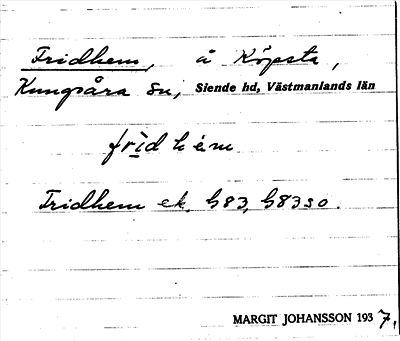 Fridhem, å Köpsta,
Kungsåra sn, Siende hd, Västmanlands län
frìd hèm.
Fridhem ek. G83, G83SO.
MARGIT JOHANSSON 1937.